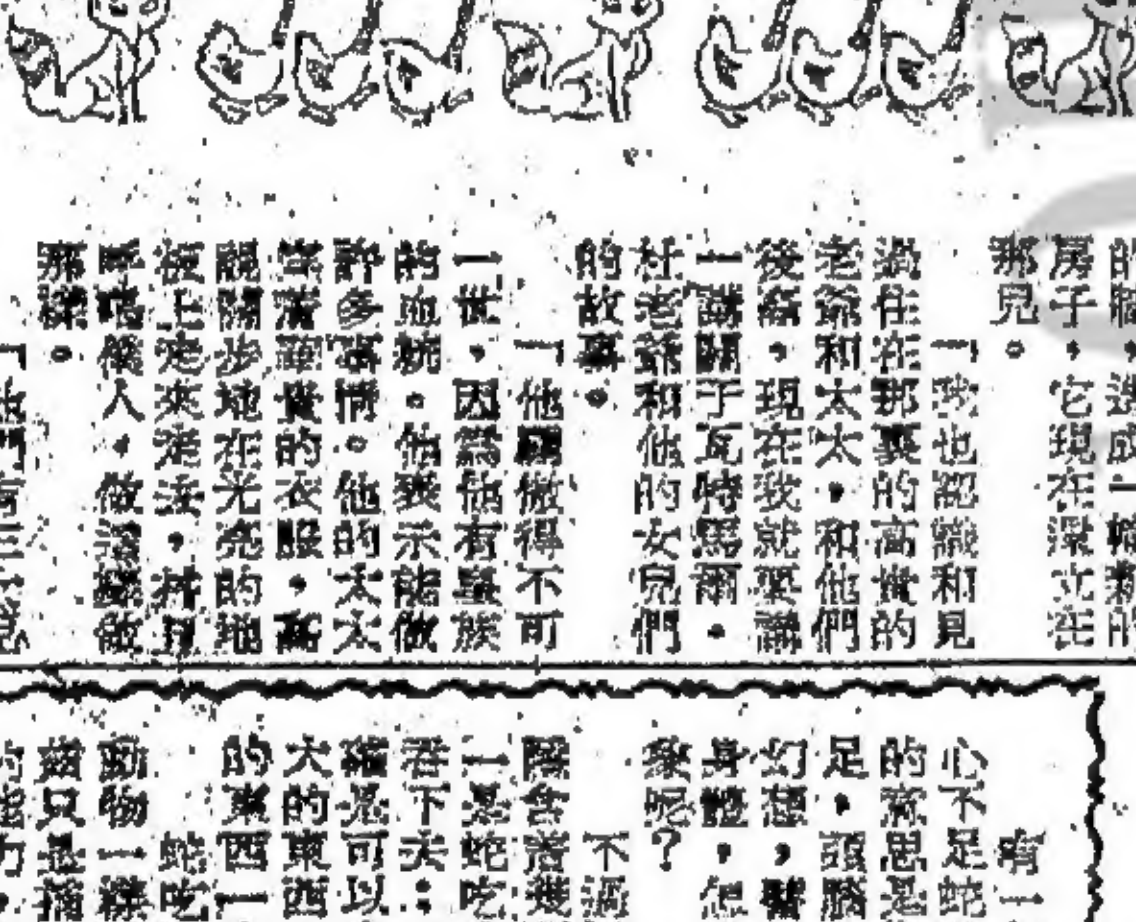 的牆，造成一幢新的
房子，它現在還立在
那兒。
「我也認識和見
過住在那裏的高貴的
老爺和太太，和他們
後裔，現在我就要講
一講關于瓦特馬爾，
杜老爺和他的女兒們
的故事。
「他驕傲得不可
一世，因爲他有皇族
的血統。他表示能做
許多事情。他的太太
穿着華貴的衣服，高
視闊步地在光亮的地
板上走來走去，
呼喝僕人，做這樣做
那樣。
「他們有三
有一
心不足蛇
的意思是
足，頭腦
幻想，譬
身體，怎
象呢？
不過
隱含着幾
一是蛇吃
吞下去：
確是可以
大的東西
的東西一
蛇吃
動物一樣
齒只是
的能力，